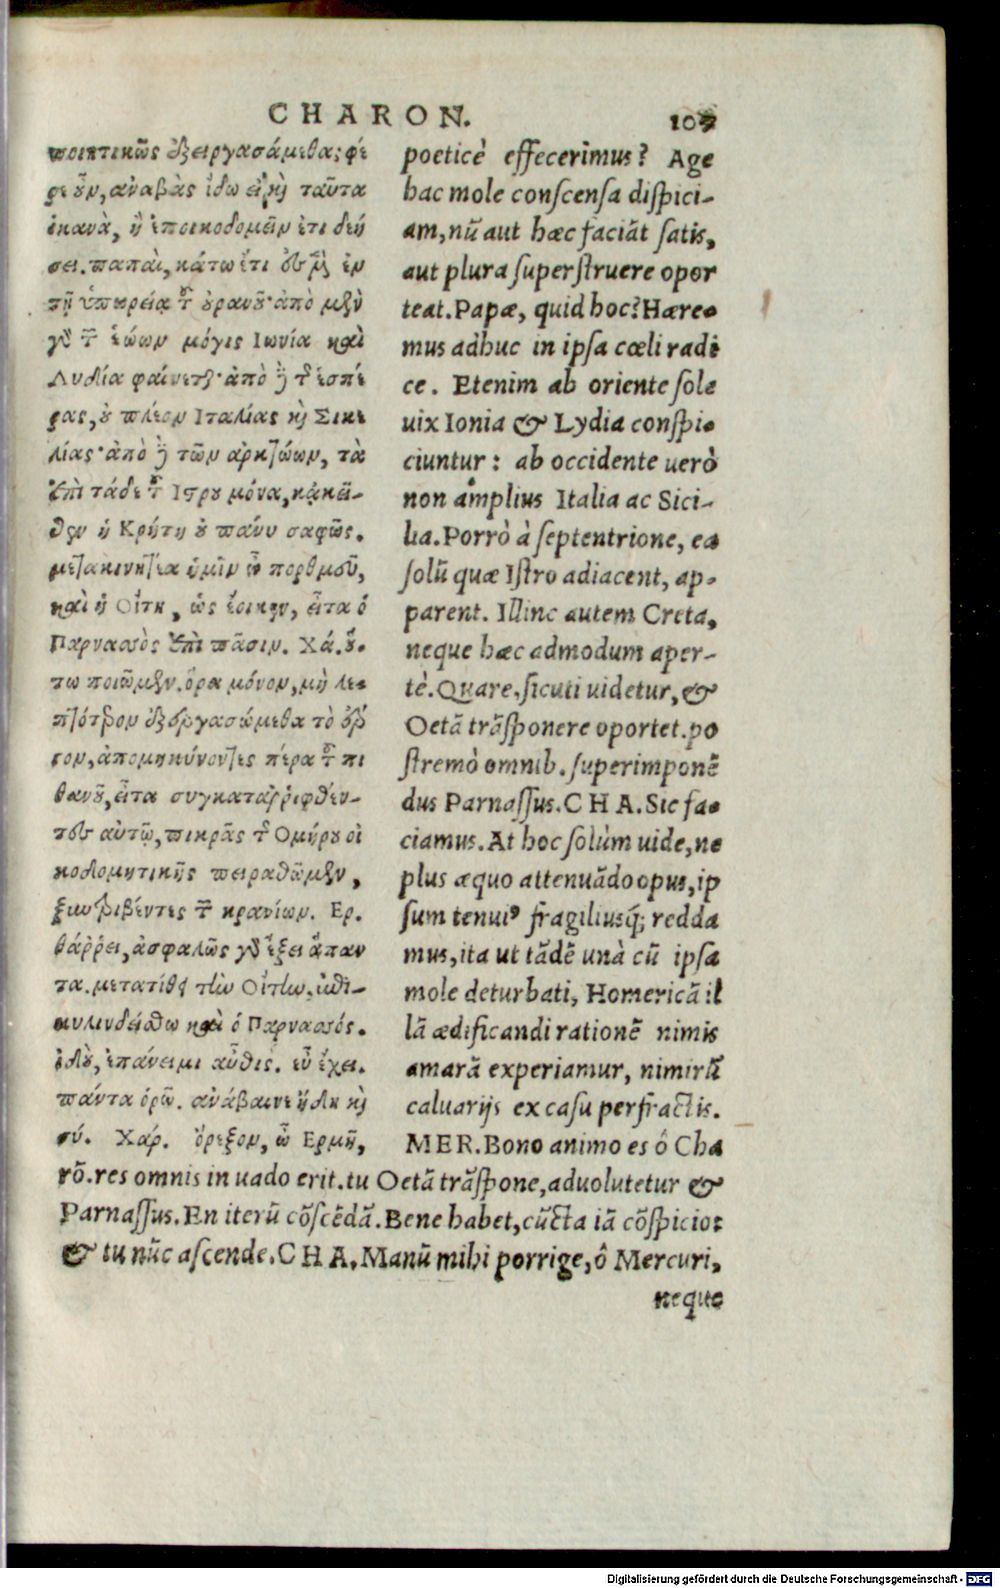 CHARON. 107
ποιητικῶς ἐξειργασάμεθα; φέ
ρε οὖν, ἀναβὰς ἴδω εἰ καὶ ταῦτα
ἱκανὰ, ἢ ἐποικοδομεῖν ἔτι δεή
σει. παπαὶ, κάτω ἔτι ἐσμὲν ἐν
τῇ ὑπωρείᾳ τοῦ οὐρανοῦ· ἀπὸ μὲν
γὰρ τῶν ἑώων μόγις Ιωνία καὶ
Λυδία φαίνεται· ἀπὸ δὲ τῆς ἑσπέ
ρας, οὐ πλέον Ιταλίας καὶ Σικε
λίας· ἀπὸ δὲ τῶν ἀρκτώων, τὰ
ἐπὶ τάδε τοῦ Ιστρου μόνα, κἀκεῖ-
θεν ἡ Κρήτη οὐ πάνυ σαφῶς.
μετακινητέα ἡμῖν ὦ πορθμεῦ,
καὶ ἡ Οἴτη, ὡς ἔοικεν, εἶτα ὁ
Παρνασσὸς ἐπὶ πᾶσιν. Χά. οὕ-
τω ποιῶμεν. ὅρα μόνον, μὴ λε-
πτότερον ἐξεργασώμεθα τὸ ἔρ
γον, ἀπομηκύνοντες πέρα τοῦ πι
θανοῦ, εἶτα συγκαταρριφθέν-
τες αὐτῷ, πικρᾶς τῆς Ομήρου οἰ
κοδομητικῆς πειραθῶμεν,
ξυντριβέντες τῶν κρανίων. Ερ.
θάρρει, ἀσφαλῶς γὰρ ἕξει ἅπαν
τα. μετατίθει τὴν Οἴτην. ἐπι-
κυλινδείσθω καὶ ὁ Παρνασσός.
ἰδοὺ, ἐπάνειμι αὖθις. εὖ ἔχει.
πάντα ὁρῶ. ἀνάβαινε ἤδη καὶ
σύ. Χάρ. ὄρεξον, ὦ Ερμῆ,
poeticè effecerimus? Age
hac mole conscensa dispici-
am, nũ aut hæc faciãt satis,
aut plura superstruere opor
teat. Papæ, quid hoc? Hære-
mus adhuc in ipsa cœli radi
ce. Etenim ab oriente sole
uix Ionia & Lydia conspi-
ciuntur: ab occidente uerò
non amplius Italia ac Sici-
lia. Porrò à septentrione, ea
solũ quæ Istro adiacent, ap-
parent. Illinc autem Creta,
neque hæc admodum aper-
tè. Quare, sicuti uidetur, &
Oetã trãsponere oportet. po
stremò omnib. superimponẽ
dus Parnassus. CHA. Sic fa-
ciamus. At hoc solùm uide, ne
plus æquo attenuãdo opus, ip
sum tenuiꝰ fragiliusq́; redda
mus, ita ut tãdẽ unà cũ ipsa
mole deturbati, Homericã il
lã ædificandi rationẽ nimis
amarã experiamur, nimirũ
caluarijs ex casu perfractis.
MER. Bono animo es ô Cha
rõ. res omnis in uado erit. tu Oetã trãspone, aduolutetur &
Parnassus. En iterũ cõscẽdã. Bene habet, cũcta iã cõspicio:
& tu nũc ascende. CHA. Manũ mihi porrige, ô Mercuri,
neque
Digitalisierung gefördert durch die Deutsche Forschungsgemeinschaft - DFG